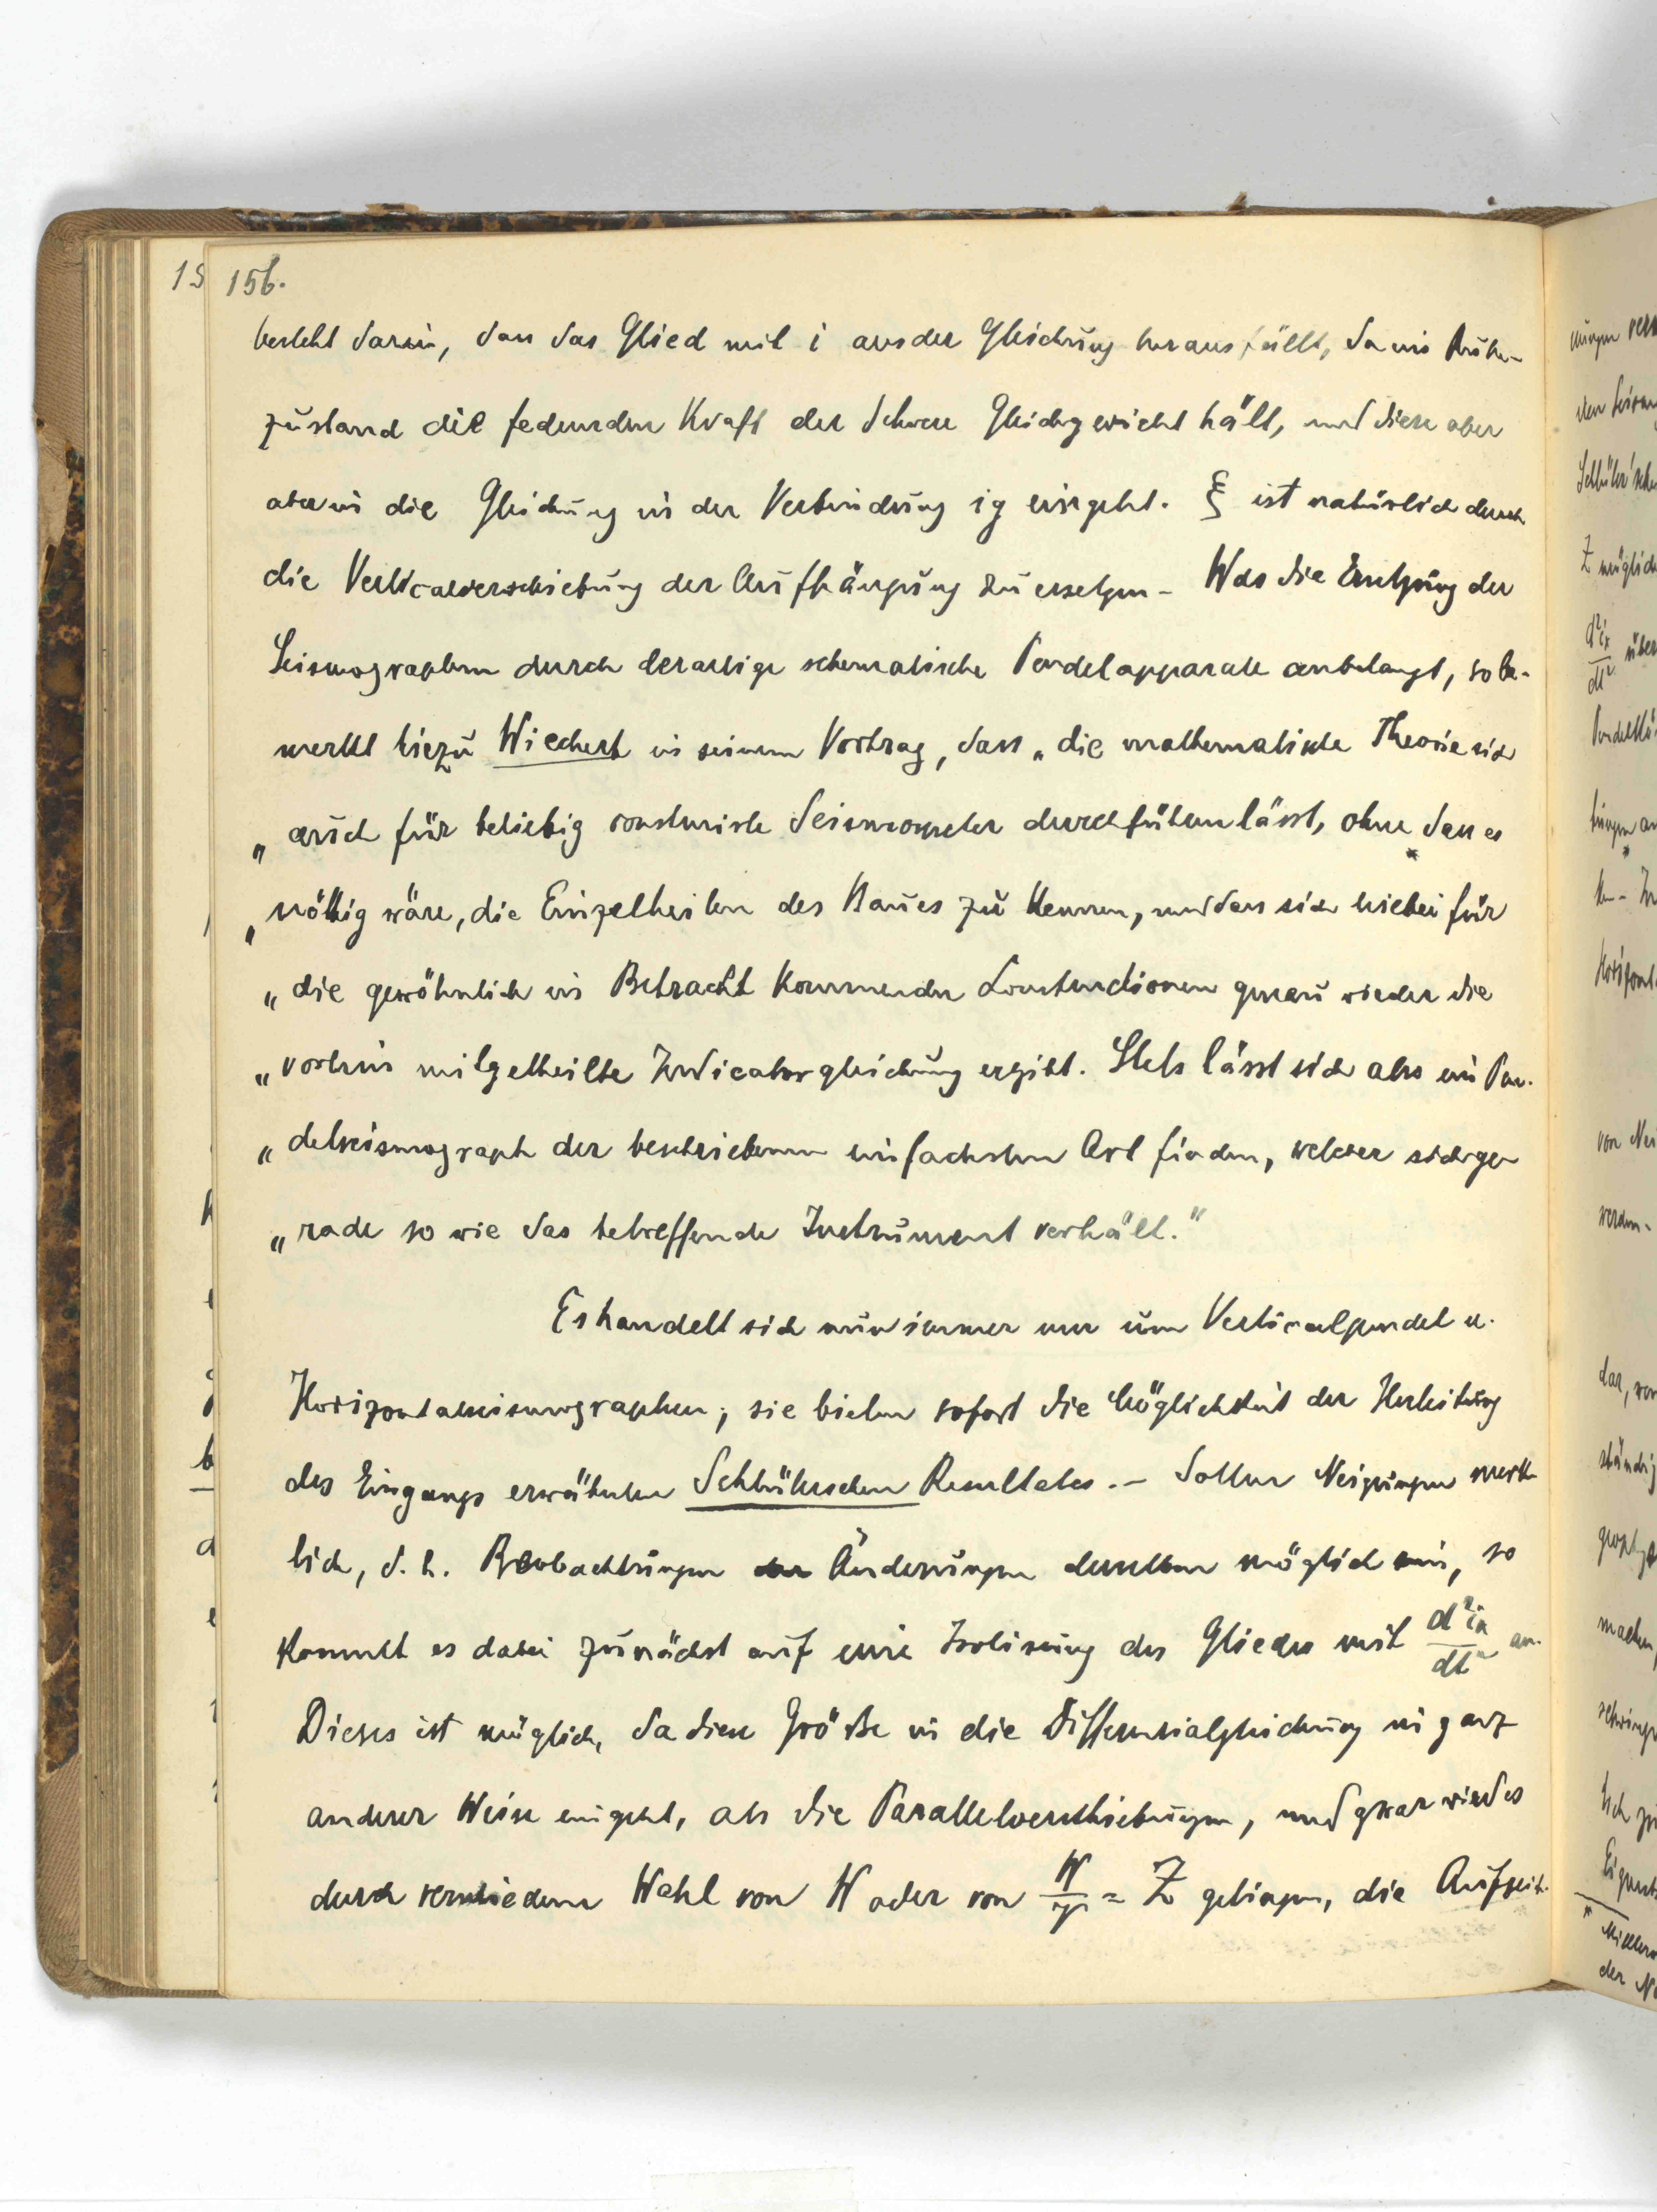 156.
besteht darin, dass das Glied mit i aus der Gleichung herausfällt, da im Ruhe-
zustand die federnden Kraft der Schwere Gleichgewicht hält, und diese aber
aber in die Gleichung in der Verbindung ig eingeht. ξ ist natürlich durch
die Verticalverschiebung der Aufhängung zu ersetzen - Was die Ersetzung der
Seismographen durch derartige schematische Pendelapparate anbelangt, so be-
merkt hiezu Wiechert in seinem Vortrag, dass „die mathematische Theorie sich
„auch für beliebig construirte Seismometer durchführen lässt, ohne dass es
„nöthig wäre, die Einzelheiten des Baues zu kennen, und dass sich hiebei für
„die gewöhnlich in Betracht kommenden Constructionen genau wieder die
„vorhin mitgetheilte Indicatorgleichung ergibt. Stets lässt sich also ein Pen-
„delseismograph der beschriebenen einfachsten Art finden, welcher sich ge
„rade so wie das betreffende Instrument verhält."
Es handelt sich nun immer nur um Verticalpendel u.
Horizontalseismographen; sie bieten sofort die Möglichkeit der Herleitung
des Eingangs erwähnten Schlüterschen Resultates. - Sollen Neigungen merk-
lich, d. h. Beobachtungen der Änderungen derselben möglich sein, so
kommt es dabei zunächst auf eine Isolierung des Gliedes mit d²ix/dt² an.
Dieses ist möglich, da diese Größe in die Differentialgleichung in ganz
anderer Weise eingeht, als die Parallelverschiebungen, und zwar wird es
durch verschiedene Wahl von W oder von W/γ = Z gelingen, die Aufzeich-